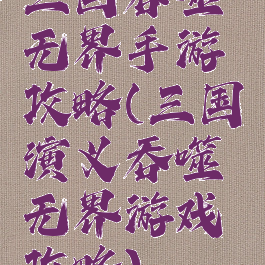 三国吞噬
无界手游
攻略(三国
演义吞噬
无界游戏
攻略)